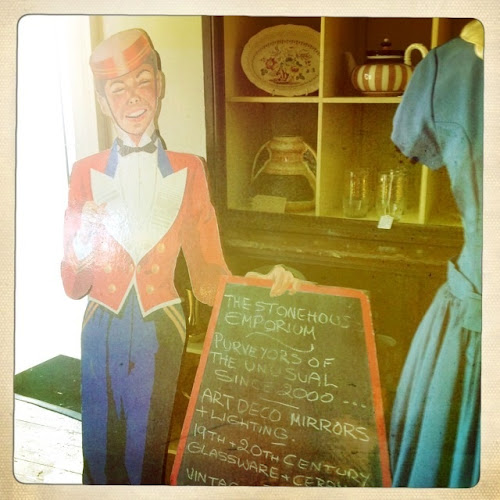 THE STONEHOUSE
EMPORIUM
PURVEYORS OF
THE UNUSUAL
SINCE 2000 ...
ART DECO MIRRORS
+ LIGHTING.
19TH + 20TH CENTURY
GLASSWARE +